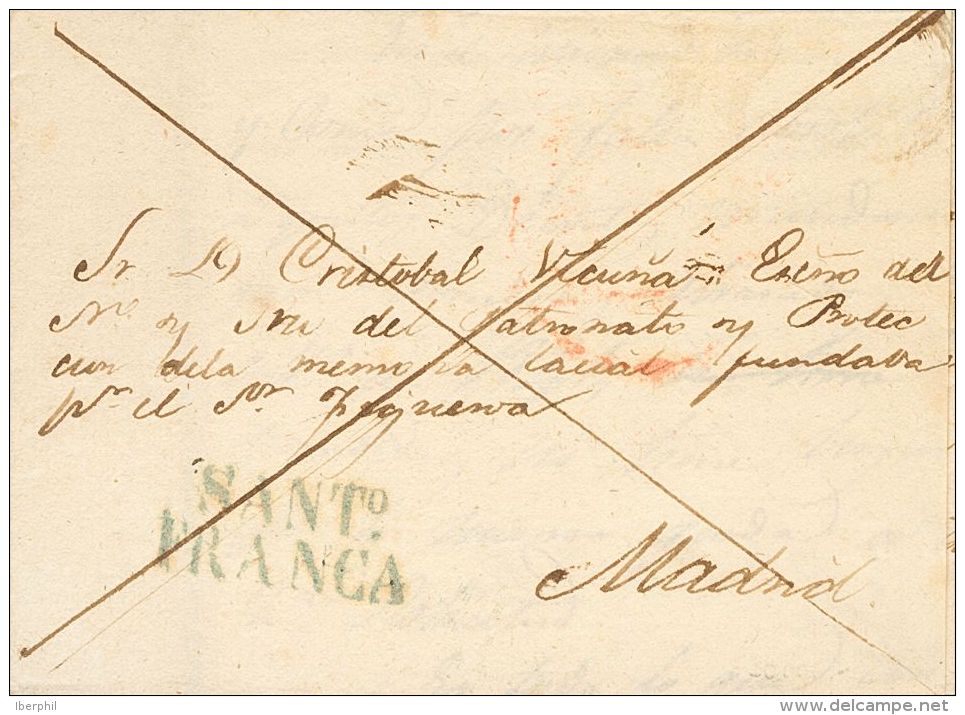 Sr. D Cristobal Vicuña Esno del
No. y Sru del Patronato y Protec
cion dela memoria lacual fundava
pr. el Sor. Figueroa
SANTO.
FRANCA
Madrid.
Iberphil
www.delcampe.net